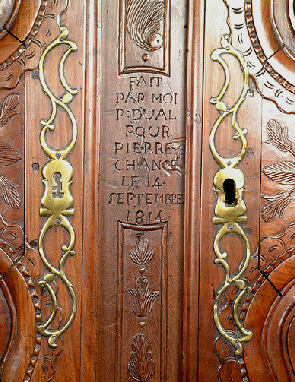 FAIT
PAR MOI
P. DUAL
POUR
PIERRE
CHANCE
LE 14
SEPTEMBRE
1814